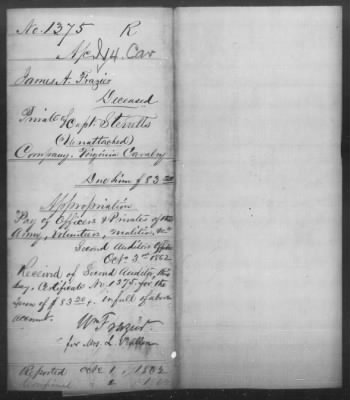 No. 1375 R
14. Cav
James A. Frazier
Deceased
Private of Capt. Sterretts
(Unattached)
Company, Virginia Cavalry
Due him $ 83 20
Appropriation
Pay of Officers & Privates of the
Army, Volunteers, Militia, &c
Second Auditors Office
Oct. 3rd 1862
Received of Second Auditor, this
day, Certificate No. 1375. for the
sum of $ 83 20, in full of above
account.
Wm Frazier
for Mrs. L.
Reported Oct 1, 1862